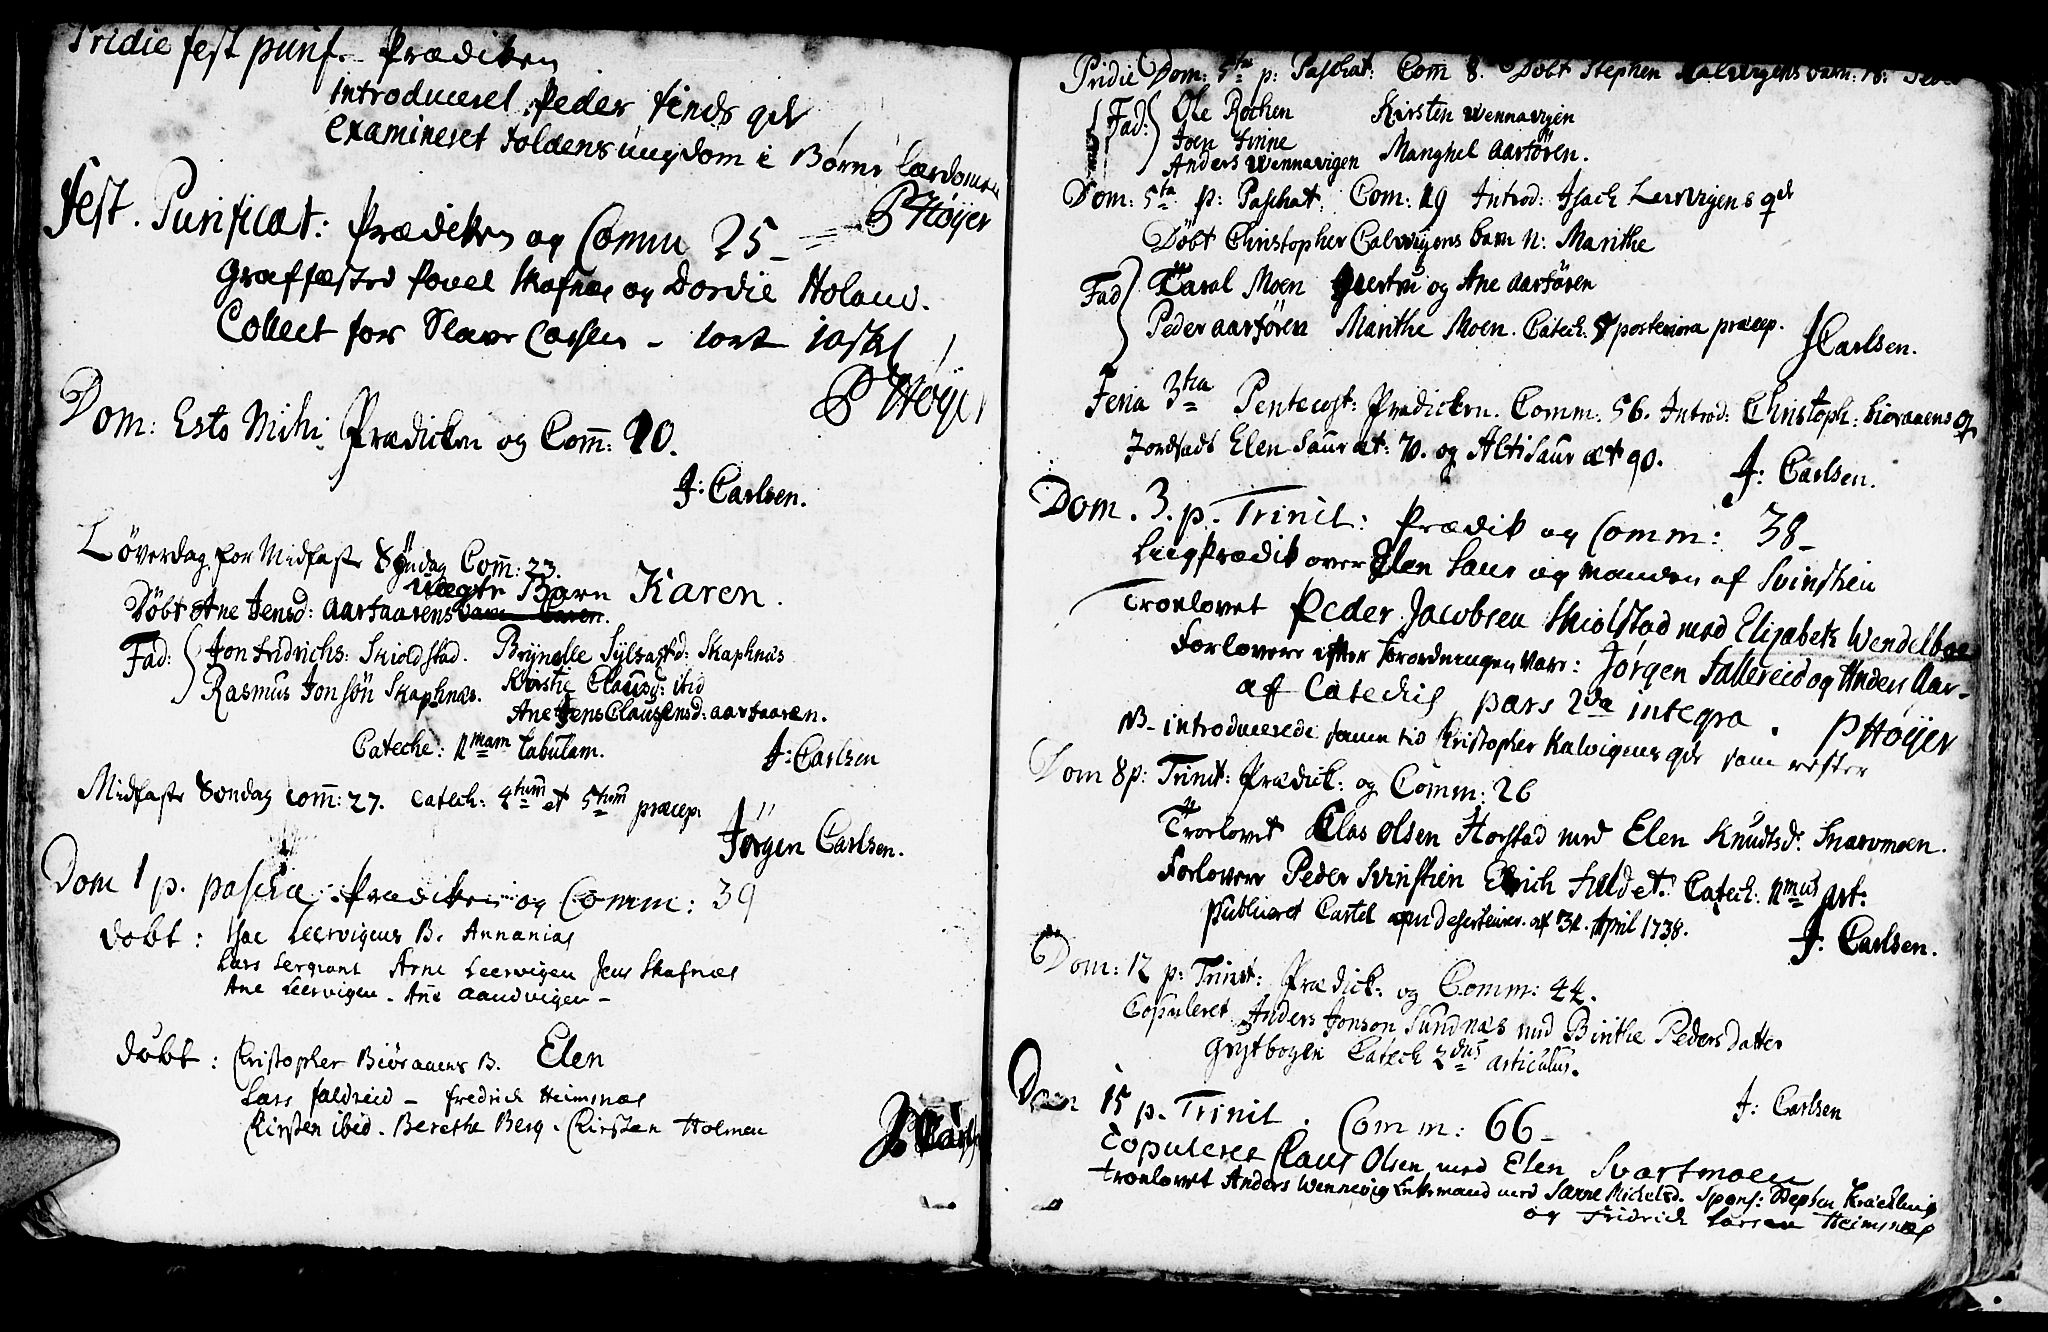 Pridie fest purif. Prædiken
introduceret Peder Finds qv
Examineret Foldens ungdom i Børne Lærdomen
P Høyer
Fest. Purificat: Prædiken og Commu 25
Græsfæsted Povel Skafnæs og Dordie Holand.
Collect for Slave Cassen -
P Høyer
Dom: Esto Mihi Prædicken og Com̄: 20.
J: Carlsen.
Løverdag for Midfaste Søndag Com̄: 23.
uægte Barn Karen.
Døbt Ane Jensd: Aarfaarens barn Caren.
Fad: Jon Fridrichs: Skioldstad. Brynelle Sylvastd: Skaphnæs
Rasmus Jonsøn Skaphnæs. Kirstie Clausd: ibid
Ane Jens Clausensd: aarfaaren.
Cateche: 1mam tabulam.
J: Carlsen
Midfaste Søndag Com̄: 27. Catech: 4tum et 5tum præcep.
Jørgen Carlsen.
Dom 1 p. pascha: Prædiken og Comm: 39
døbt: Isac Leervigens B. Annanias
Lars Sergiant Arne Leervigen Jens Skafnæs
Ane Leervigen - Ane Aandvigen -
døbt: Christopher Biøraaens B. Elen
Lars Faldreid - fredrich Heimsnæs
Kirsten ibid. Berethe Berg. Kirsten Holmen
J: Carls
Pridie Dom: 5ta p: Paschat: Com̄ 8. Døbt Stephen Calvigens barn: N:
Fad: Ole Rochen Kirsten Wennevigen
Joen Finne Manghel Aarføren.
Anders Wennavigen
Dom: 5ta p: Paschat: Com: 19 Introd: Isach Leervigens qv
Døbt Christopher Calvigens barn N: Marithe
Fad Taral Moen og Ane Aarføren
Peder aarføren Marithe Moen. Catech: posteriora præcep.
J Carlsen.
Feria 3tia Pentecost: Prædicken. Comm: 56. Introd: Christoph: Biøraaens q
Jordfæst Elen Saur æt: 70. og Alti Saur æt 90.
J: Carlsen.
Dom. 3. p. Trinit: Prædik og Comm: 38
Liigprædik over Elen Saur og Manden af Svinstien
Troelovet Peder Jacobsen Skiolstad med Elizabeth Wendelboe
Forlovere efter Forordningen vare: Jørgen Fallereid og Anders Aar-
af Catechis pars 2da integra.
P Høyer
NB. introducerede samme tid Christopher Kalvigens qv som
Dom 8 p: Trinit: Prædick: og Comm: 26
Troelovet Clas Olsen Horstad med Elen Knudsd: Svartmoen.
Forlovere Peder Svinstien Erich Fuldet. Catech: 1mus Art:
Publiceret Cartel om Deserteurer af 31. April 1738.
J: Carlsen.
Dom: 12 p: Trinit: Prædick: og Comm: 44.
Copuleret Anders Jonson Sundnæs med Birithe Pedersdatter
Grytbogen Catech 2dus articulus.
J: Carlsen
Dom 15 p. Trinit. Comm: 66
Copuleret Claus Olsen med Elen Svartmoen
troelovet Anders Wennevig Enkemand med Sarne Mickelsd. Spons: Stephen Kraekling
og Fridrich Larsen Heimsnæs